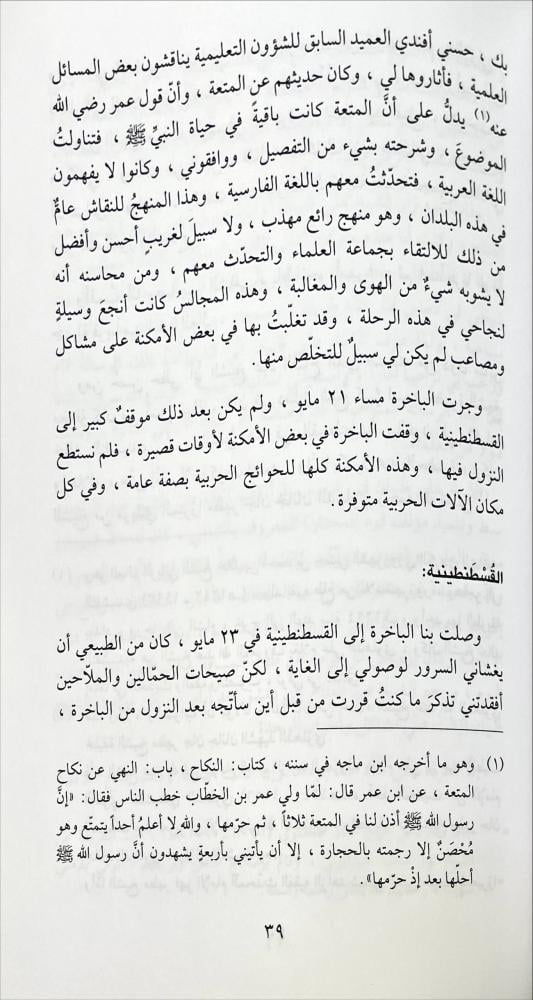 بك ، حسني أفندي العميد السابق للشؤون التعليمية يناقشون بعض المسائل
العلمية ، فأثاروها لي ، وكان حديثهم عن المتعة ، وأنّ قول عمر رضي الله
عنه(١) يدلُّ على أنَّ المتعة كانت باقيةً في حياة النبيِّ ﷺ ، فتناولتُ
الموضوعَ ، وشرحته بشيء من التفصيل ، ووافقوني ، وكانوا لا يفهمون
اللغة العربية ، فتحدّثتُ معهم باللغة الفارسية ، وهذا المنهجُ للنقاش عامٌّ
في هذه البلدان ، وهو منهج رائع مهذب ، ولا سبيلَ لغريبٍ أحسن وأفضل
من ذلك للالتقاء بجماعة العلماء والتحدّث معهم ، ومن محاسنه أنه
لا يشوبه شيءٌ من الهوى والمغالبة ، وهذه المجالسُ كانت أنجعَ وسيلةٍ
لنجاحي في هذه الرحلة ، وقد تغلّبتُ بها في بعض الأمكنة على مشاكل
ومصاعب لم يكن لي سبيلٌ للتخلّص منها .
وجرت الباخرة مساء ٢١ مايو ، ولم يكن بعد ذلك موقفٌ كبير إلى
القسطنطينية ، وقفت الباخرة في بعض الأمكنة لأوقات قصيرة ، فلم نستطع
النزول فيها ، وهذه الأمكنة كلها للحوائج الحربية بصفة عامة ، وفي كل
مكان الآلات الحربية متوفرة .
القُسْطَنطِينية:
وصلت بنا الباخرة إلى القسطنطينية في ٢٣ مايو ، كان من الطبيعي أن
يغشاني السرور لوصولي إلى الغاية ، لكنّ صيحات الحمّالين والملاّحين
أفقدتني تذكرَ ما كنتُ قررت من قبل أين سأتّجه بعد النزول من الباخرة ،
(١) وهو ما أخرجه ابن ماجه في سننه ، كتاب: النكاح ، باب: النهي عن نكاح
المتعة ، عن ابن عمر قال: لمّا ولي عمر بن الخطّاب خطب الناس فقال: «إنَّ
رسول الله ﷺ أذن لنا في المتعة ثلاثاً ، ثم حرّمها ، والله لا أعلمُ أحداً يتمتّع وهو
مُحْصَنٌ إلا رجمته بالحجارة ، إلا أن يأتيني بأربعةٍ يشهدون أنَّ رسول الله ﷺ
أحلّها بعد إذْ حرّمها» .
٣٩